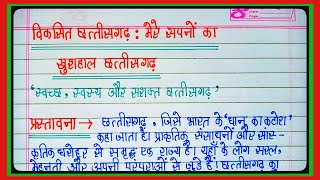 विकसित छत्तीसगढ़ : मेरे सपनों का
खुशहाल छत्तीसगढ़
'स्वच्छ, स्वस्थ और सशक्त छत्तीसगढ़'
प्रस्तावना → छत्तीसगढ़, जिसे भारत के 'धान का कटोरा'
कहा जाता है। प्राकृतिक संसाधनों और सांस-
कृतिक धरोहर से समृद्ध एक राज्य है। यहाँ के लोग सरल,
मेहनती और अपनी परंपराओं से जुड़े हैं। छत्तीसगढ़ का